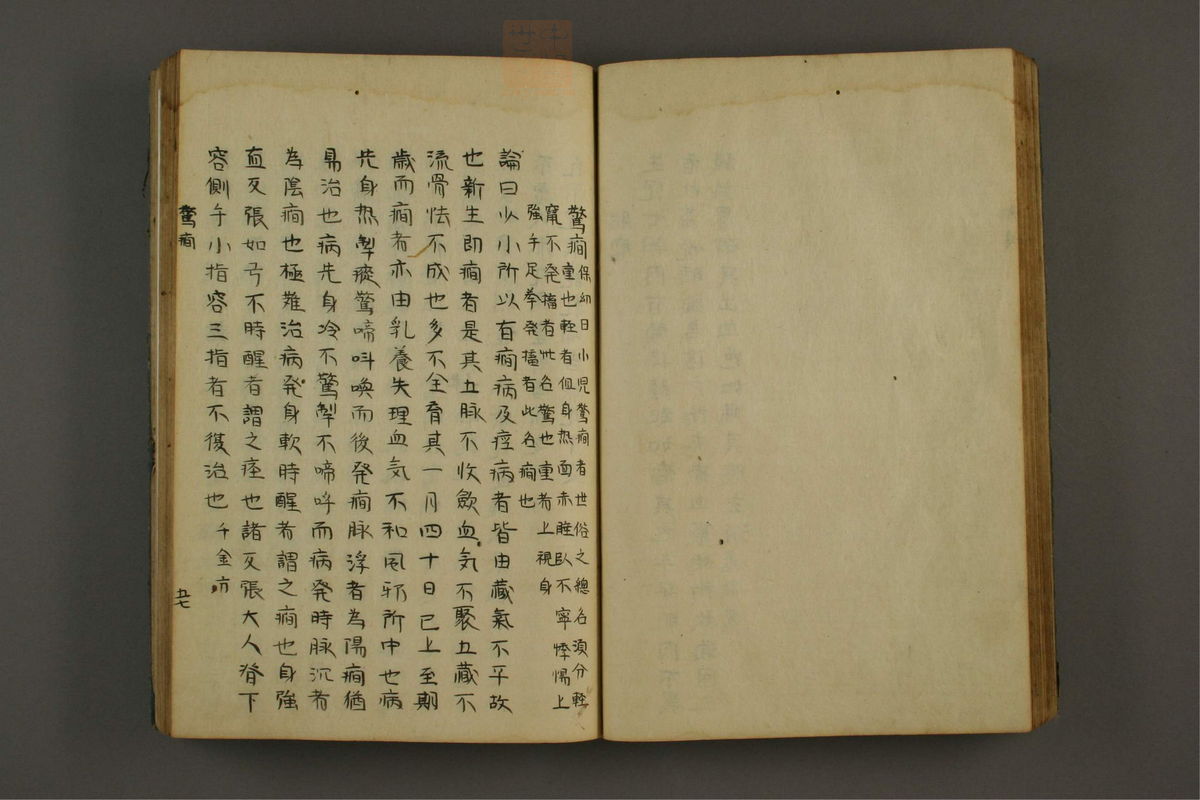 驚癇保幼曰小児驚癇者世俗之總名須分輕
重也輕者但身热面赤睡臥不寧悸惕上
竄不発搐者此名驚也重者上視身
強手足拳発搐者此名癇也
論曰少小所以有癇病及痙病者皆由藏氣不平故
也新生即癇者是其五脉不收歛血気不聚五藏不
流骨怯不成也多不全育其一月四十日已上至期
歳而癇者亦由乳養失理血気不和風邪所中也病
先身热掣瘲驚啼叫喚而後発癇脉浮者為陽癇猶
易治也病先身冷不驚掣不啼呼而病発時脉沉者
為陰癇也極難治病発身軟時醒者謂之癇也身強
直反張如弓不時醒者謂之痙也諸反張大人脊下
容側手小指容三指者不復治也 千金方
驚癇
五七